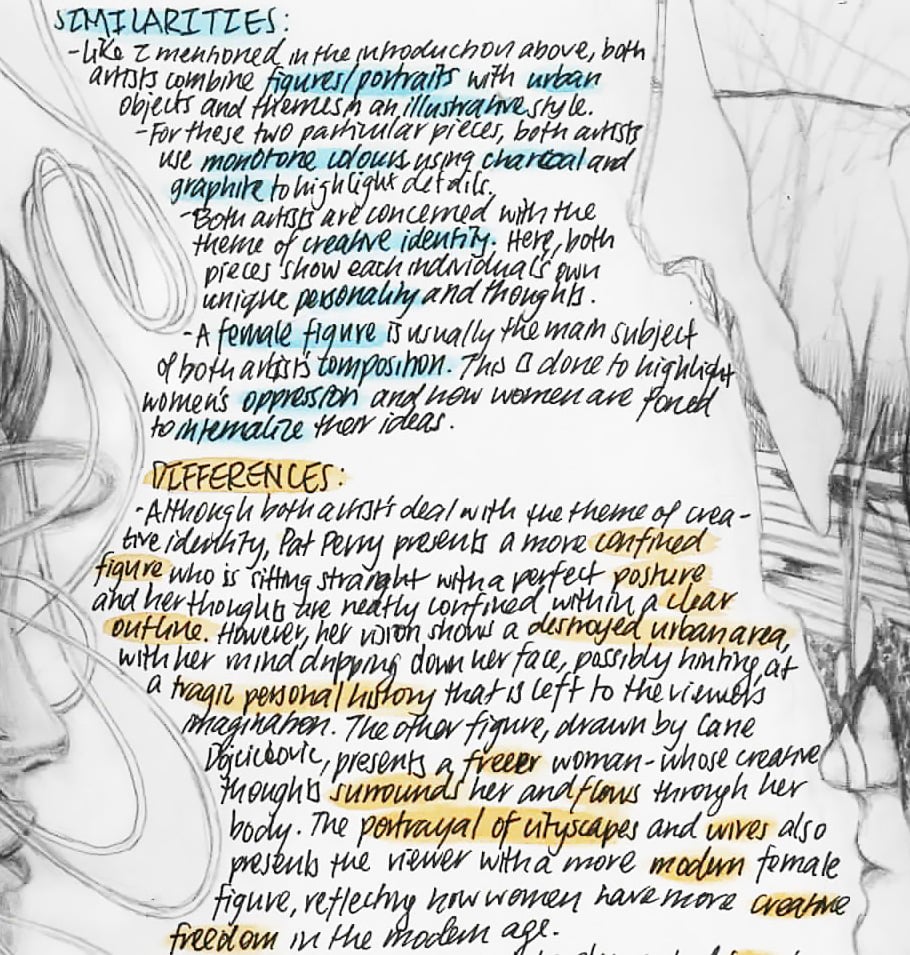 SIMILARITIES:
-Like I mentioned in the introduction above, both
artists combine figures/portraits with urban
objects and themes in an illustrative style.
-For these two particular pieces, both artists
use monotone colours using charcoal and
graphite to highlight details.
-Both artists are concerned with the
theme of creative identity. Here, both
pieces show each individual's own
unique personality and thoughts.
-A female figure is usually the main subject
of both artist's composition. This is done to highlight
women's oppression and how women are forced
to internalize their ideas.
DIFFERENCES:
-Although both artist's deal with the theme of crea-
tive identity, Pat Perry presents a more confined
figure who is sitting straight with a perfect posture
and her thoughts are neatly confined within a clear
outline. However, her vision shows a destroyed urban area,
with her mind dripping down her face, possibly hinting at
a tragic personal history that is left to the viewers
imagination. The other figure, drawn by Lane
presents a freeer woman - whose creative
thoughts surrounds her and flows through her
body. The portrayal of cityscapes and wires also
presents the viewer with a more modern female
figure, reflecting how women have more creative
freedom in the modern age.